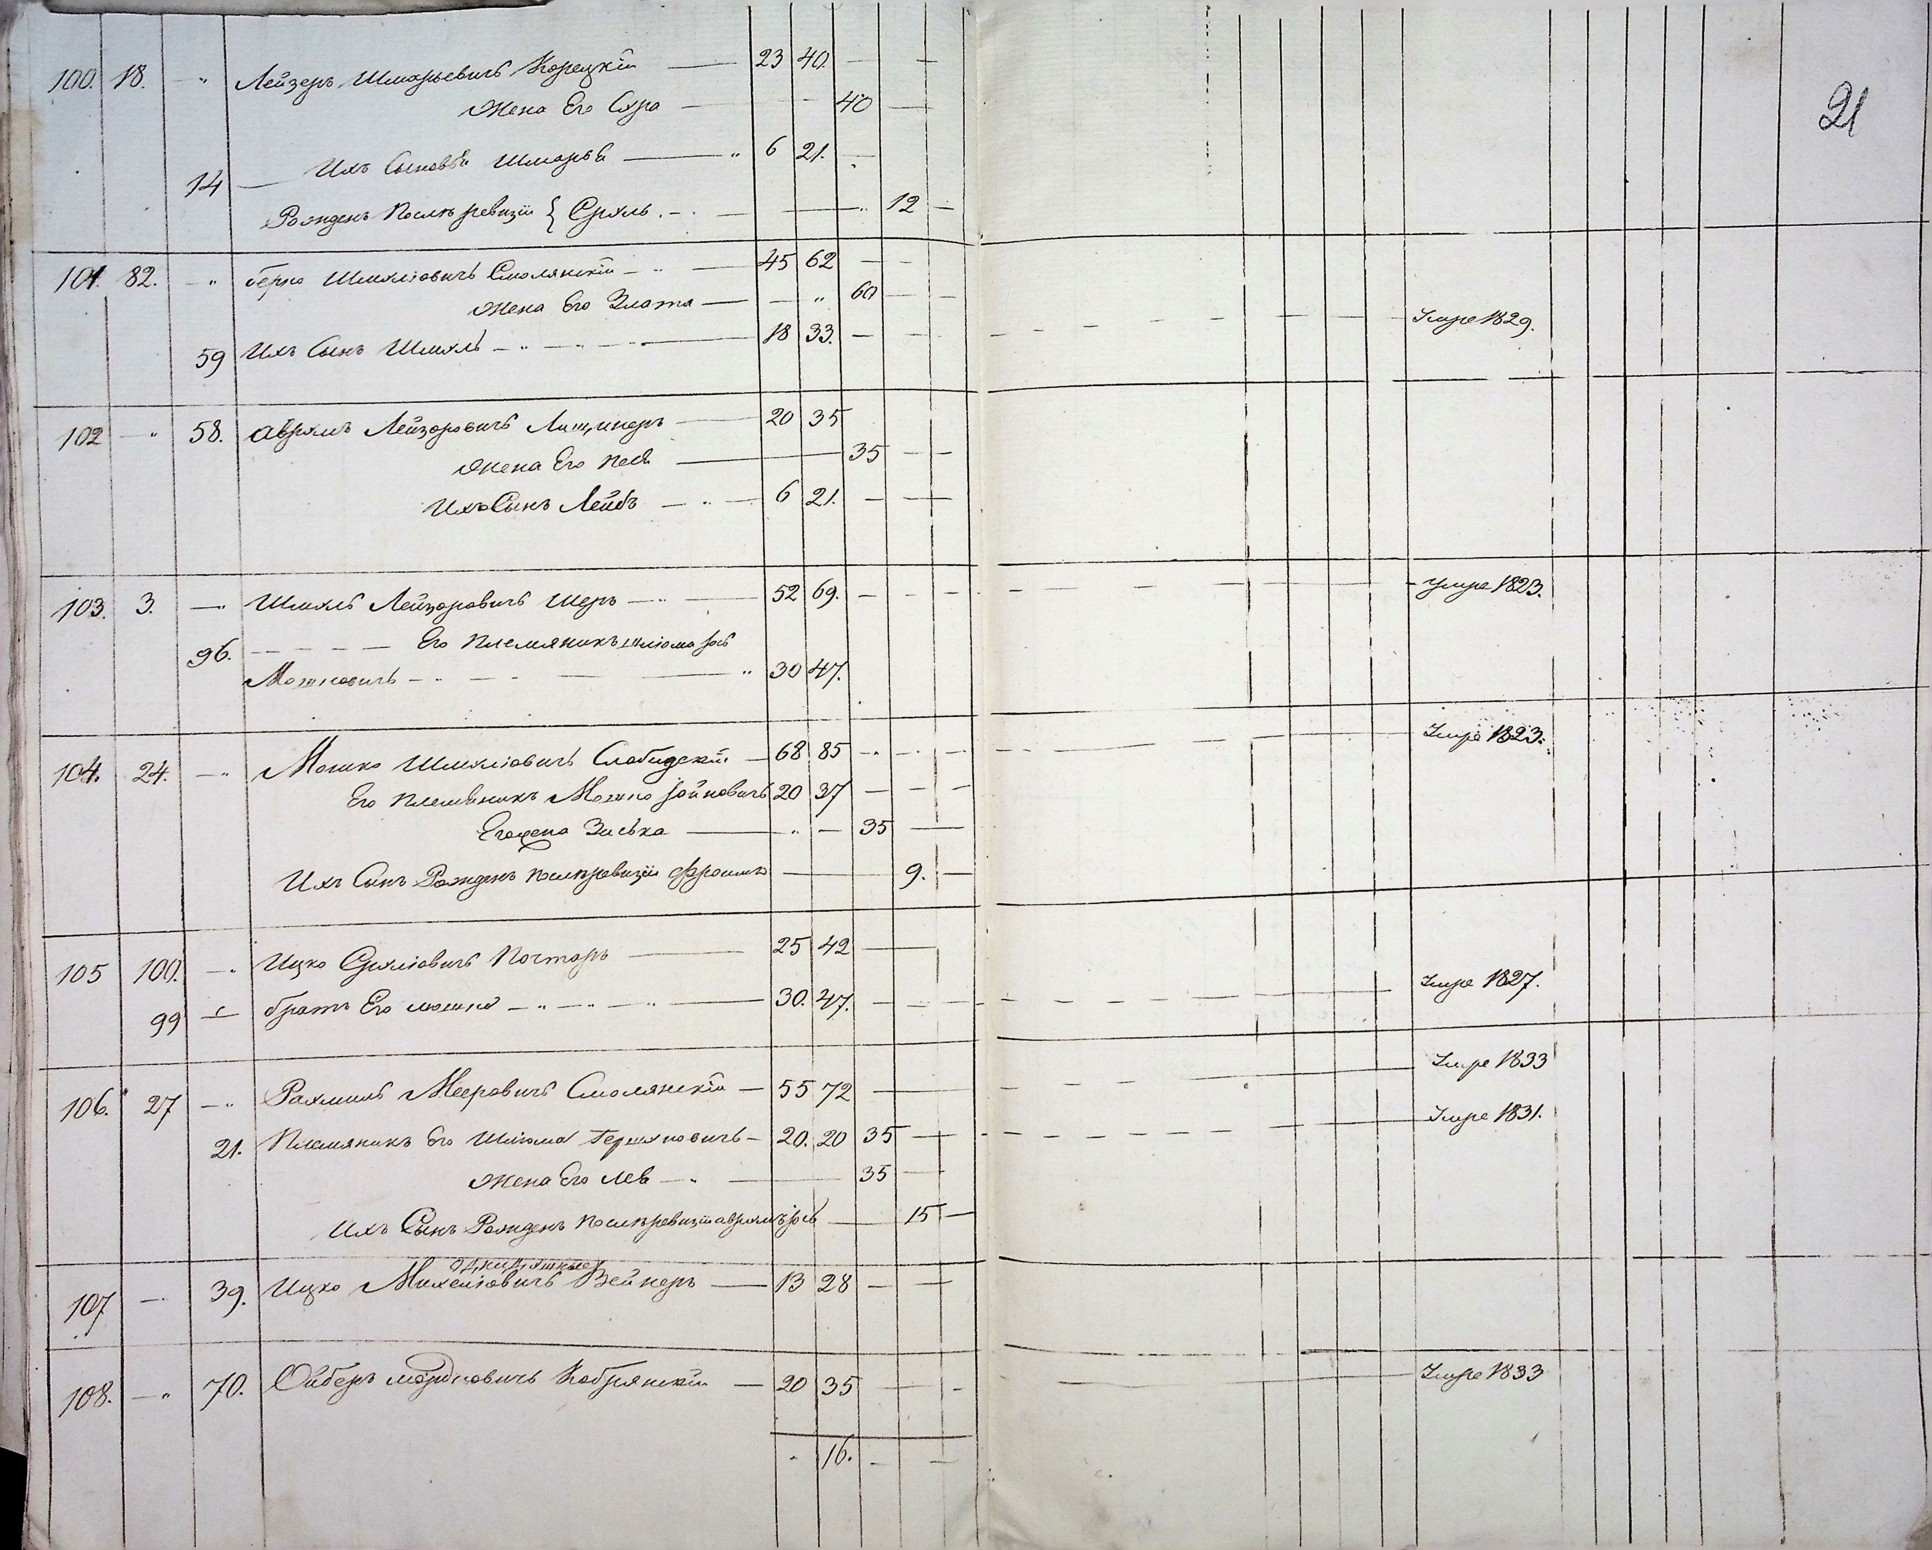 21
100. 18. Лейзеръ Шмарьевичъ Корецкій 23 40.
Жена Его Сура 40
Ихъ Сыновья Шмарья 6 21.
14
Рожденъ Послѣ ревизіи { Сруль. 12
101. 82. берко Шмуліовичъ Смолянскій 45 62
Жена Его Злота 60
59 Ихъ Сынъ Шмуль 18 33. Умре 1829.
102 58. Аврумъ Лейзоровичъ 20 35
Жена Его Песя 35
Ихъ Сынъ Лейбъ 6 21.
103. 3. Шмуль Лейзоровичъ Шеръ 52 69. Умре 1823.
96. Его Племяникъ Шліома Іосъ
Мошковичъ 30 47.
104. 24. Мошко Шмуліовичъ Слободскій 68 85 Умре 1823.
Его племяникъ Мошко Іойновичъ 20 37
Его жена Зиська 35
Ихъ Сынъ Рожденъ послѣ ревизіи Фроимъ 9.
105 100. Ицко Сруліовичъ Почтаръ 25 42
99 братъ Его мошко 30. 47. Умре 1827.
106. 27 Рахмиль Мееровичъ Смолянскій 55 72 Умре 1833
21. Племяникъ Его Шліома Гершковичъ 20. 20 35 Умре 1831.
Жена Его Лея 35
Ихъ Сынъ Рожденъ послѣ ревизіи аврумъ Іось 15
107 39. Ицко Михеліовичъ Вейнеръ 13 28
108. 70. Ойберъ мордковичъ Кобрянскій 20 35 Умре 1833
16.